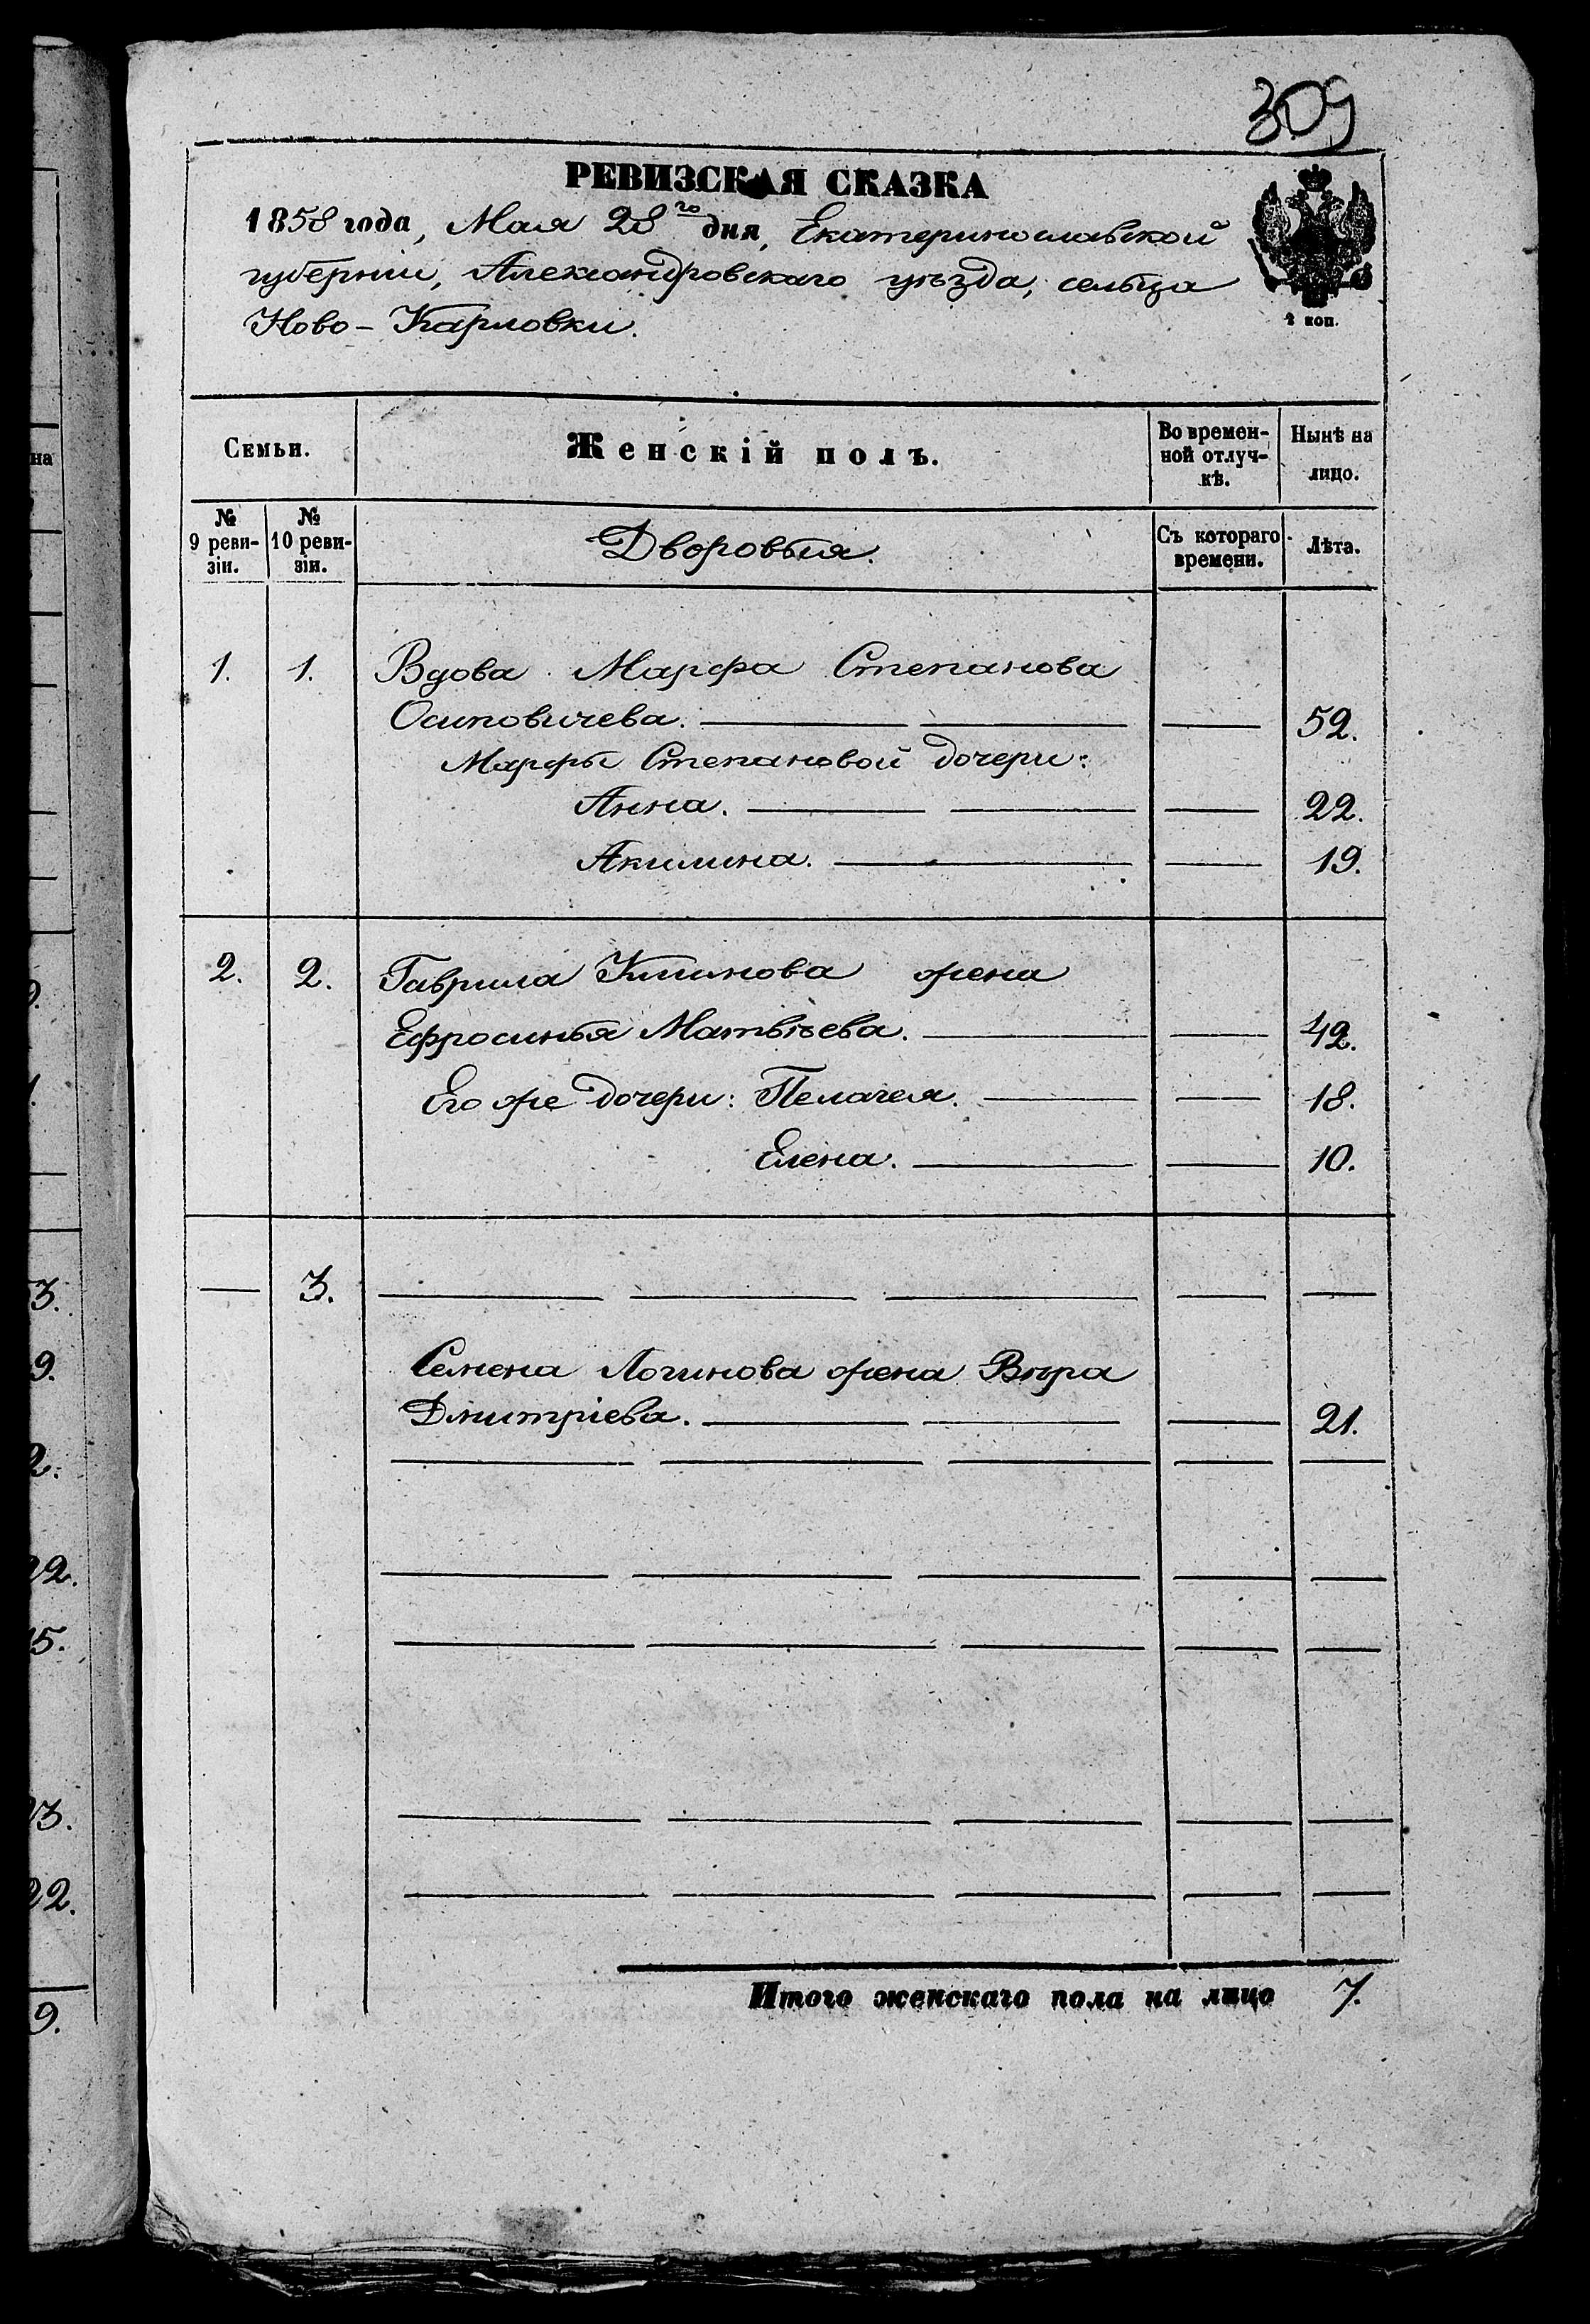 309
РЕВИЗСКАЯ СКАЗКА
1858 года, Мая 28го дня, Екатеринославской
губерніи, Александровскаго уѣзда, сельца
Ново-Карловки.
2 коп.
Семьи. Женскій полъ. Во времен- Нынѣ на
ной отлуч- лицо.
кѣ.
№ 9 реви- зіи. № 10 реви- зіи. Дворовыя. Съ котораго времени. Лѣта.
1. 1. Вдова Марфа Степанова
Осиповичева. — — — 52.
Марфы Степановой дочери:
Анна. — — — 22.
Акилина. — — 19.
2. 2. Гаврила Климова жена
Ефросинья Матвѣева. — — 42.
Его же дочери: Пелагея. — — 18.
Елена. — — 10.
— 3. — — — — —
Семена Логинова жена Вѣра
Дмитріева. — — — 21.
Итого женскаго пола на лицо 7.
на
3.
9.
2.
22.
15.
3.
22.
9.